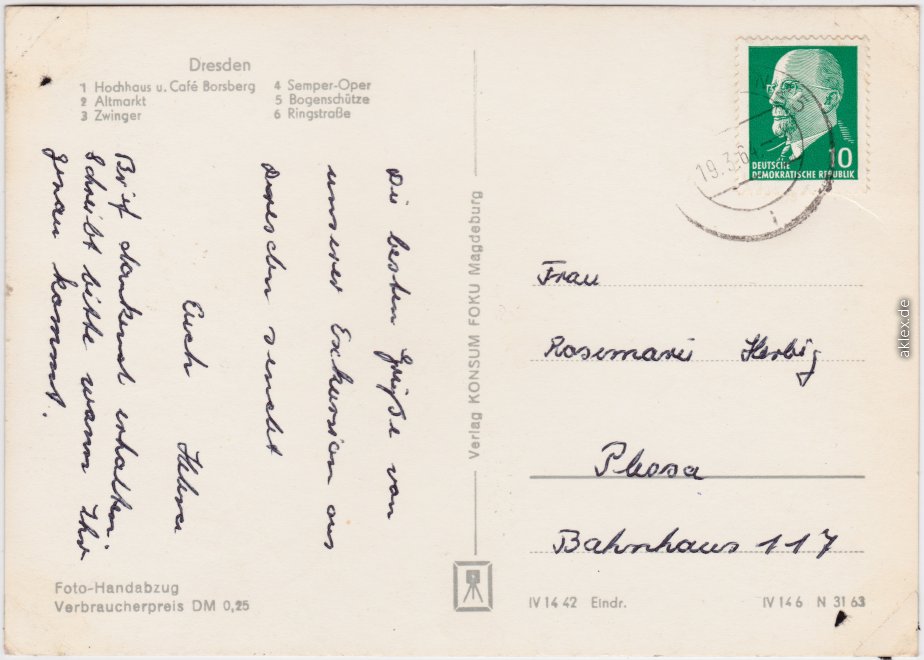 Dresden
1 Hochhaus u. Café Borsberg
2 Altmarkt
3 Zwinger
4 Semper-Oper
5 Bogenschütze
6 Ringstraße
Die besten Grüße von
unserer Exkursion aus
Dresden sendet
Euch
Brief dankend erhalten.
Schreibt bitte wann Ihr
genau kommt.
Foto-Handabzug
Verbraucherpreis DM 0,25
Verlag KONSUM FOKU Magdeburg
19.3.64
10
DEUTSCHE
DEMOKRATISCHE REPUBLIK
Frau
Rosemarie Herbig
Plessa
Bahnhaus 117
IV 14 42 Eindr.
IV 14 6 N 31 63
aklex.de